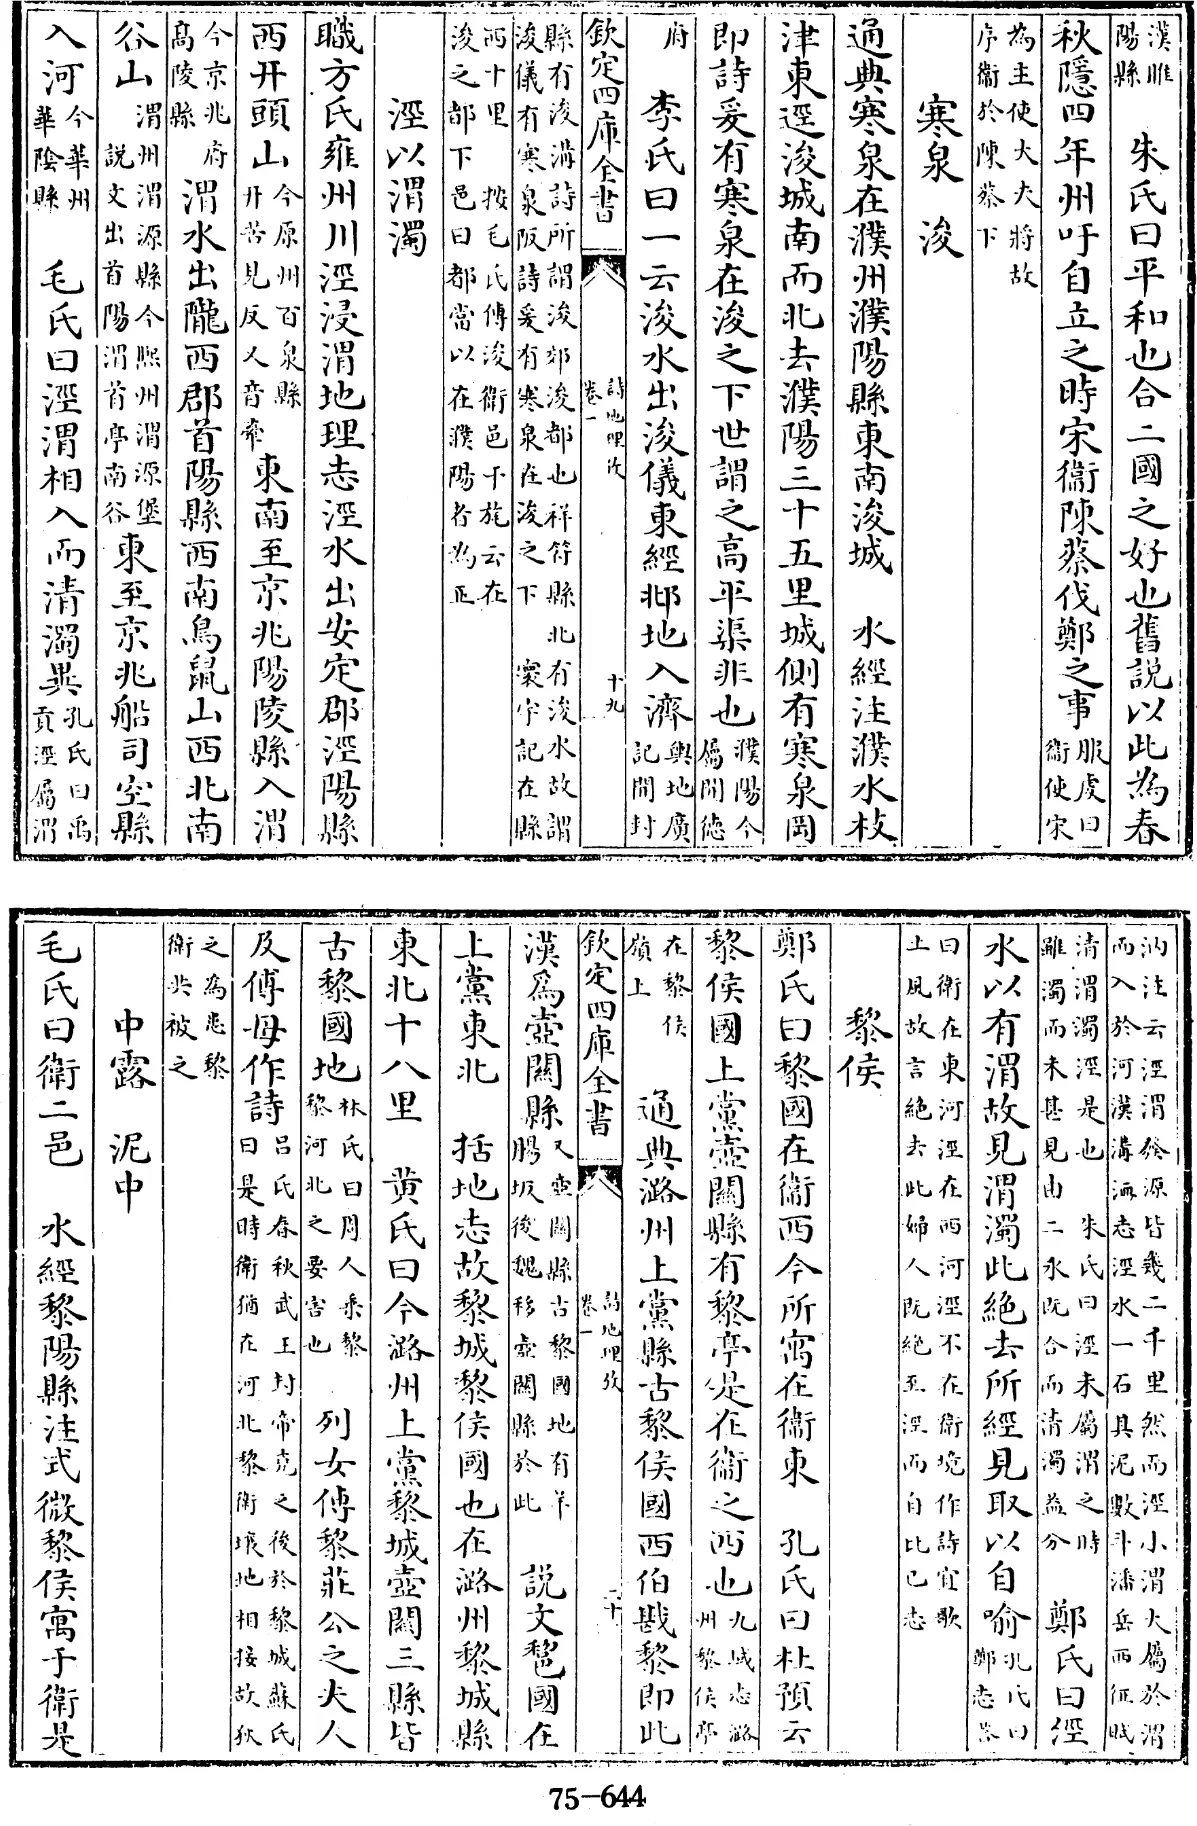 漢睢陽縣 朱氏曰平和也合二國之好也舊說以此為春
秋隱四年州吁自立之時宋衞陳蔡伐鄭之事服虔曰衞使宋
為主使大夫將故序衞於陳蔡下
寒泉 浚
通典寒泉在濮州濮陽縣東南浚城 水經注濮水枝
津東逕浚城南而北去濮陽三十五里城側有寒泉岡
即詩爰有寒泉在浚之下世謂之高平渠非也濮陽今屬開德
府 李氏曰一云浚水出浚儀東經邶地入濟輿地廣記開封
欽定四庫全書 詩地理攷 卷一 十九
縣有浚溝詩所謂浚郊浚都也祥符縣北有浚水故謂
浚儀有寒泉阪詩爰有寒泉在浚之下 寰宇記在縣
西十里 按毛氏傳浚衞邑干旄云在
浚之都下邑曰都當以在濮陽者為正
涇以渭濁
職方氏雍州川涇浸渭地理志涇水出安定郡涇陽縣
西幵頭山今原州百泉縣幵苦見反又音牽東南至京兆陽陵縣入渭
今京兆府高陵縣 渭水出隴西郡首陽縣西南鳥鼠山西北南
谷山渭州渭源縣今熙州渭源堡說文出首陽渭首亭南谷東至京兆船司空縣
入河今華州華陰縣 毛氏曰涇渭相入而清濁異孔氏曰禹貢涇屬渭
汭注云涇渭發源皆幾二千里然而涇小渭大屬於渭
而入於河漢溝洫志涇水一石其泥數斗潘岳西征賦
清渭濁涇是也 朱氏曰涇未屬渭之時雖濁而未甚見由二水既合而清濁益分 鄭氏曰涇
水以有渭故見渭濁此絶去所經見取以自喻孔氏曰鄭志荅
曰衞在東河涇在西河涇不在衞境作詩宜歌
土風故言絶去此婦人既絶至涇而自比已志
黎侯
鄭氏曰黎國在衞西今所寓在衞東 孔氏曰杜預云
黎侯國上黨壺關縣有黎亭是在衞之西也九域志潞州黎侯亭
在黎侯嶺上 通典潞州上黨縣古黎侯國西伯戡黎即此
欽定四庫全書 詩地理攷 卷一 二十
漢爲壺關縣又壺關縣古黎國地有羊腸坂後魏移壺關縣於此 說文𨛫國在
上黨東北 括地志故黎城黎侯國也在潞州黎城縣
東北十八里 黄氏曰今潞州上黨黎城壺關三縣皆
古黎國地林氏曰周人乗黎黎河北之要害也 列女傳黎莊公之夫人
及傅母作詩呂氏春秋武王封帝堯之後於黎城蘇氏曰是時衞猶在河北黎衞壤地相接故狄
之為患黎衞共被之
中露 泥中
毛氏曰衞二邑 水經黎陽縣注式微黎侯寓于衞是
75-644